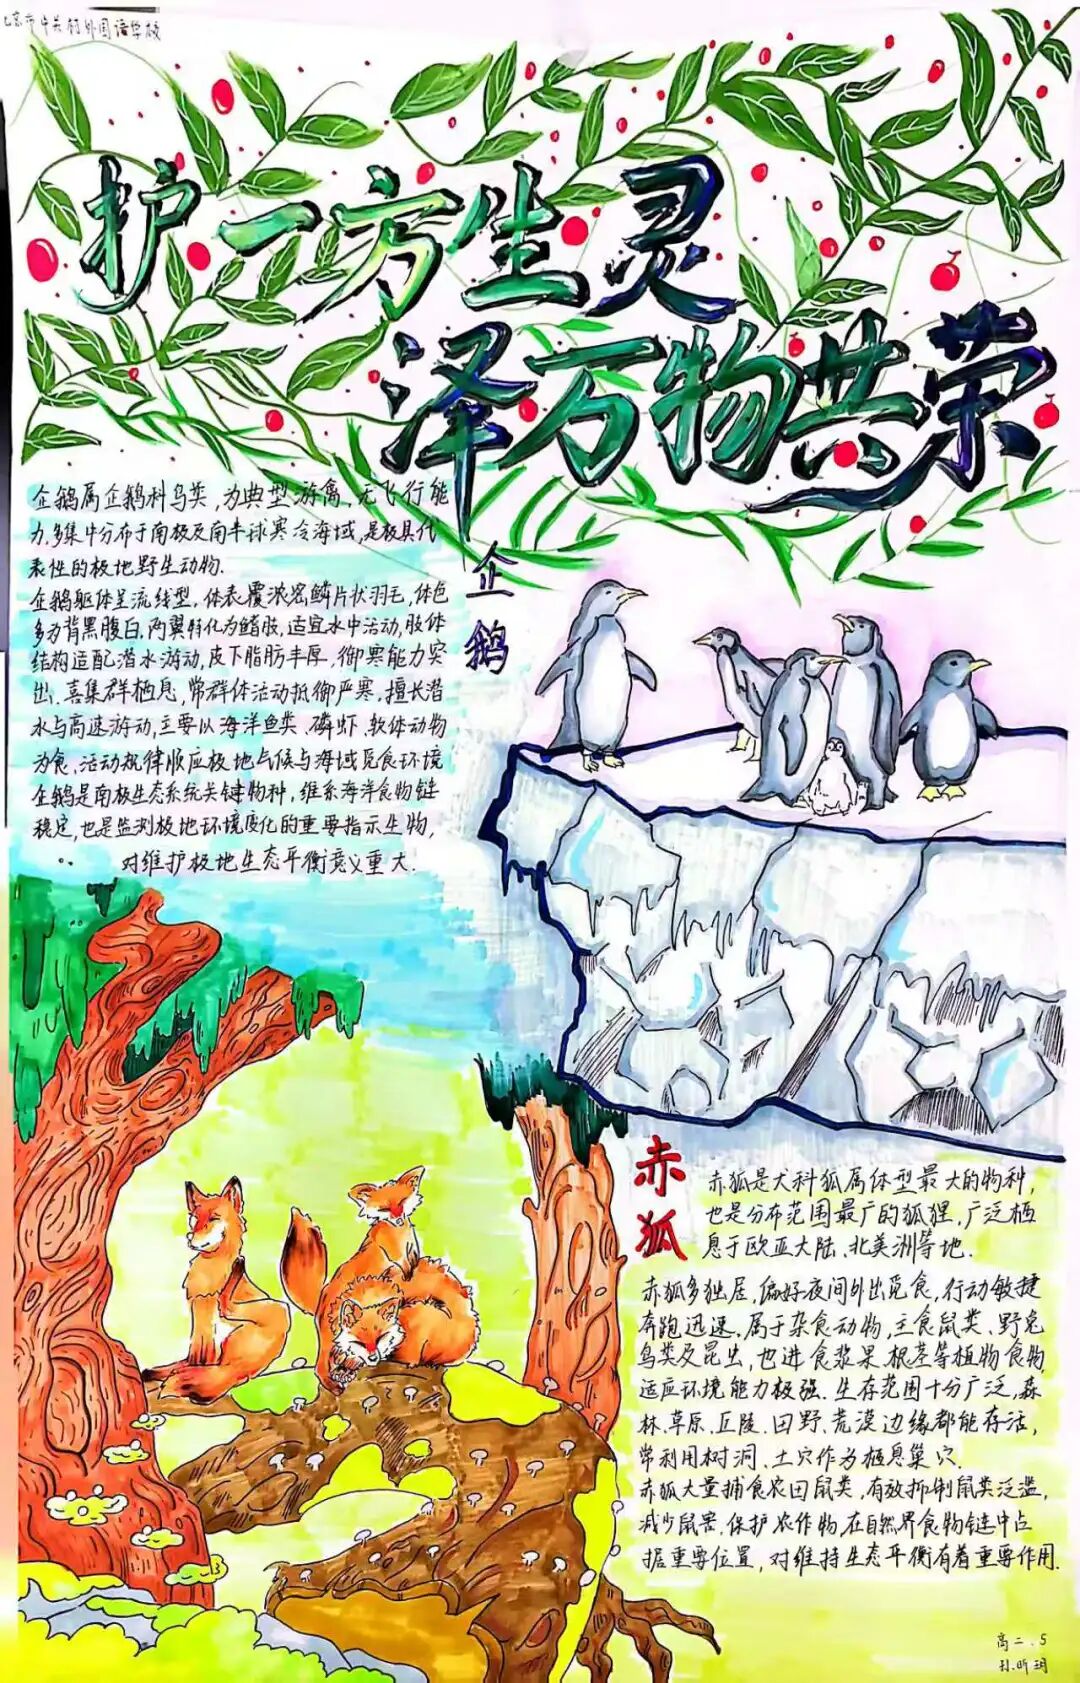 北京市中关村外国语学校
护一方生灵
泽万物共荣
企鹅属企鹅科鸟类,为典型游禽,无飞行能
力,多集中分布于南极及南半球寒冷海域,是极具代
表性的极地野生动物.
企鹅躯体呈流线型,体表覆浓密鳞片状羽毛,体色
多为背黑腹白,两翼特化为鳍肢,适宜水中活动,肢体
结构适配潜水游动,皮下脂肪丰厚,御寒能力突
出、喜集群栖息,常群体活动抵御严寒,擅长潜
水与高速游动,主要以海洋鱼类、磷虾、软体动物
为食、活动规律顺应极地气候与海域觅食环境
企鹅是南极生态系统关键物种,维系海洋食物链
稳定,也是监测极地环境变化的重要指示生物,
对维护极地生态平衡意义重大.
企鹅
赤狐
赤狐是犬科狐属体型最大的物种,
也是分布范围最广的狐狸,广泛栖
息于欧亚大陆、北美洲等地.
赤狐多独居,偏好夜间外出觅食,行动敏捷
奔跑迅速、属于杂食动物,主食鼠类、野兔
鸟类及昆虫,也进食浆果、根茎等植物食物,
适应环境能力极强、生存范围十分广泛,森
林、草原、丘陵、田野、荒漠边缘都能存活,
常利用树洞、土穴作为栖息巢穴.
赤狐大量捕食农田鼠类,有效抑制鼠类泛滥,
减少鼠害、保护农作物,在自然界食物链中占
据重要位置,对维持生态平衡有着重要作用.
高二.5
孙昕玥